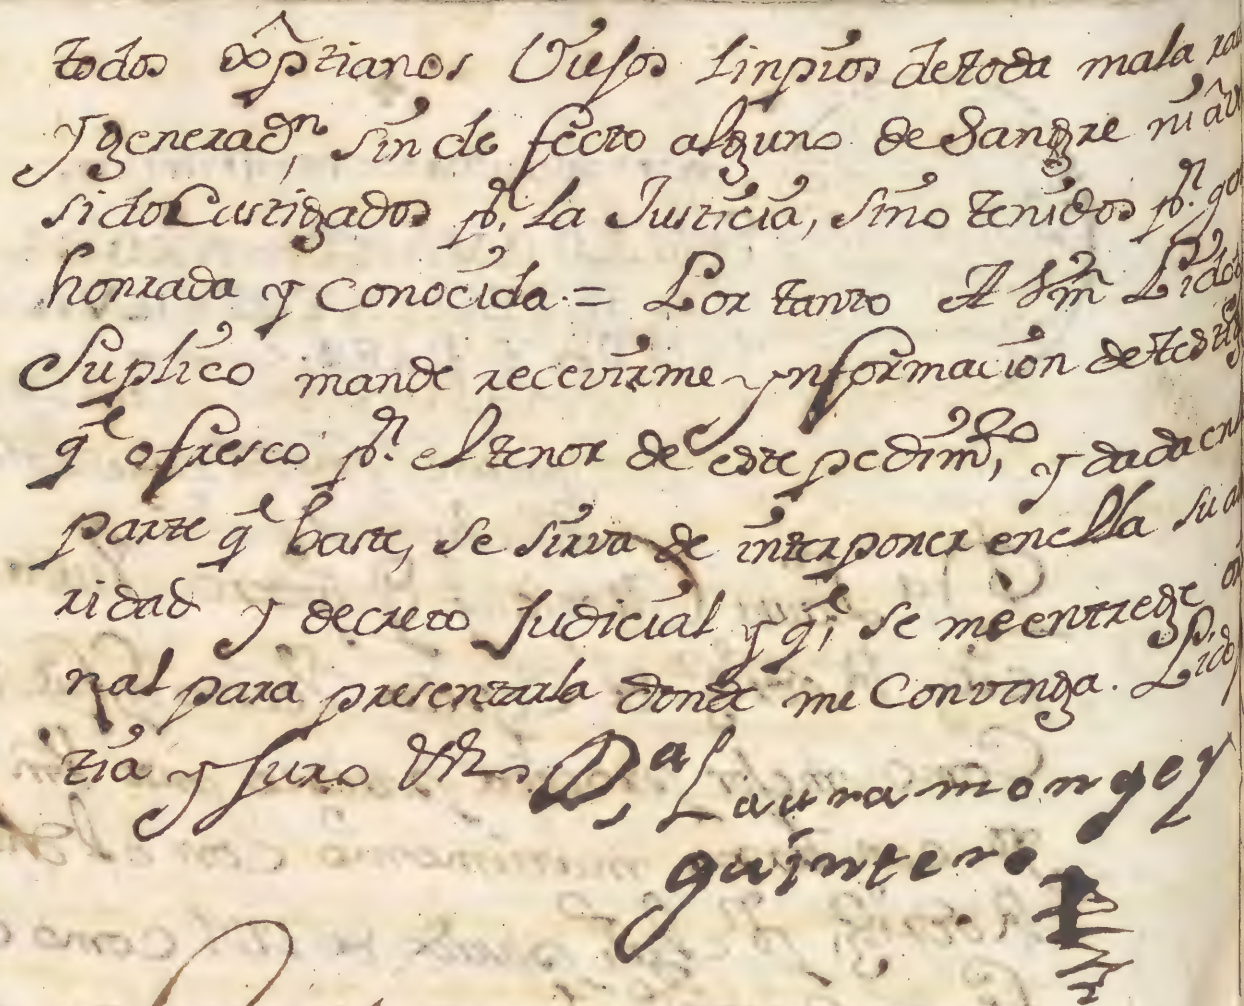 todos xp̃tianos Viejos Linpios de toda mala ra
y generaçn, sin de fecto alguno de Sangre ni
sido Castigados pr. la Justicia, sino tenidos pr.
honrada y Conocida. = Por tanto A Vm Pido
Suplico mande recevirme ynformacion de
qe ofresco pr. el tenor de este pedimto, y dada en
parte qe baste, se sirva de interponer en ella su
ridad y decreto Judicial y qe, se me entrege
nal para presentarla donde me Convenga. Pido
tia y Juro &a Da, Laura monge y
quintero